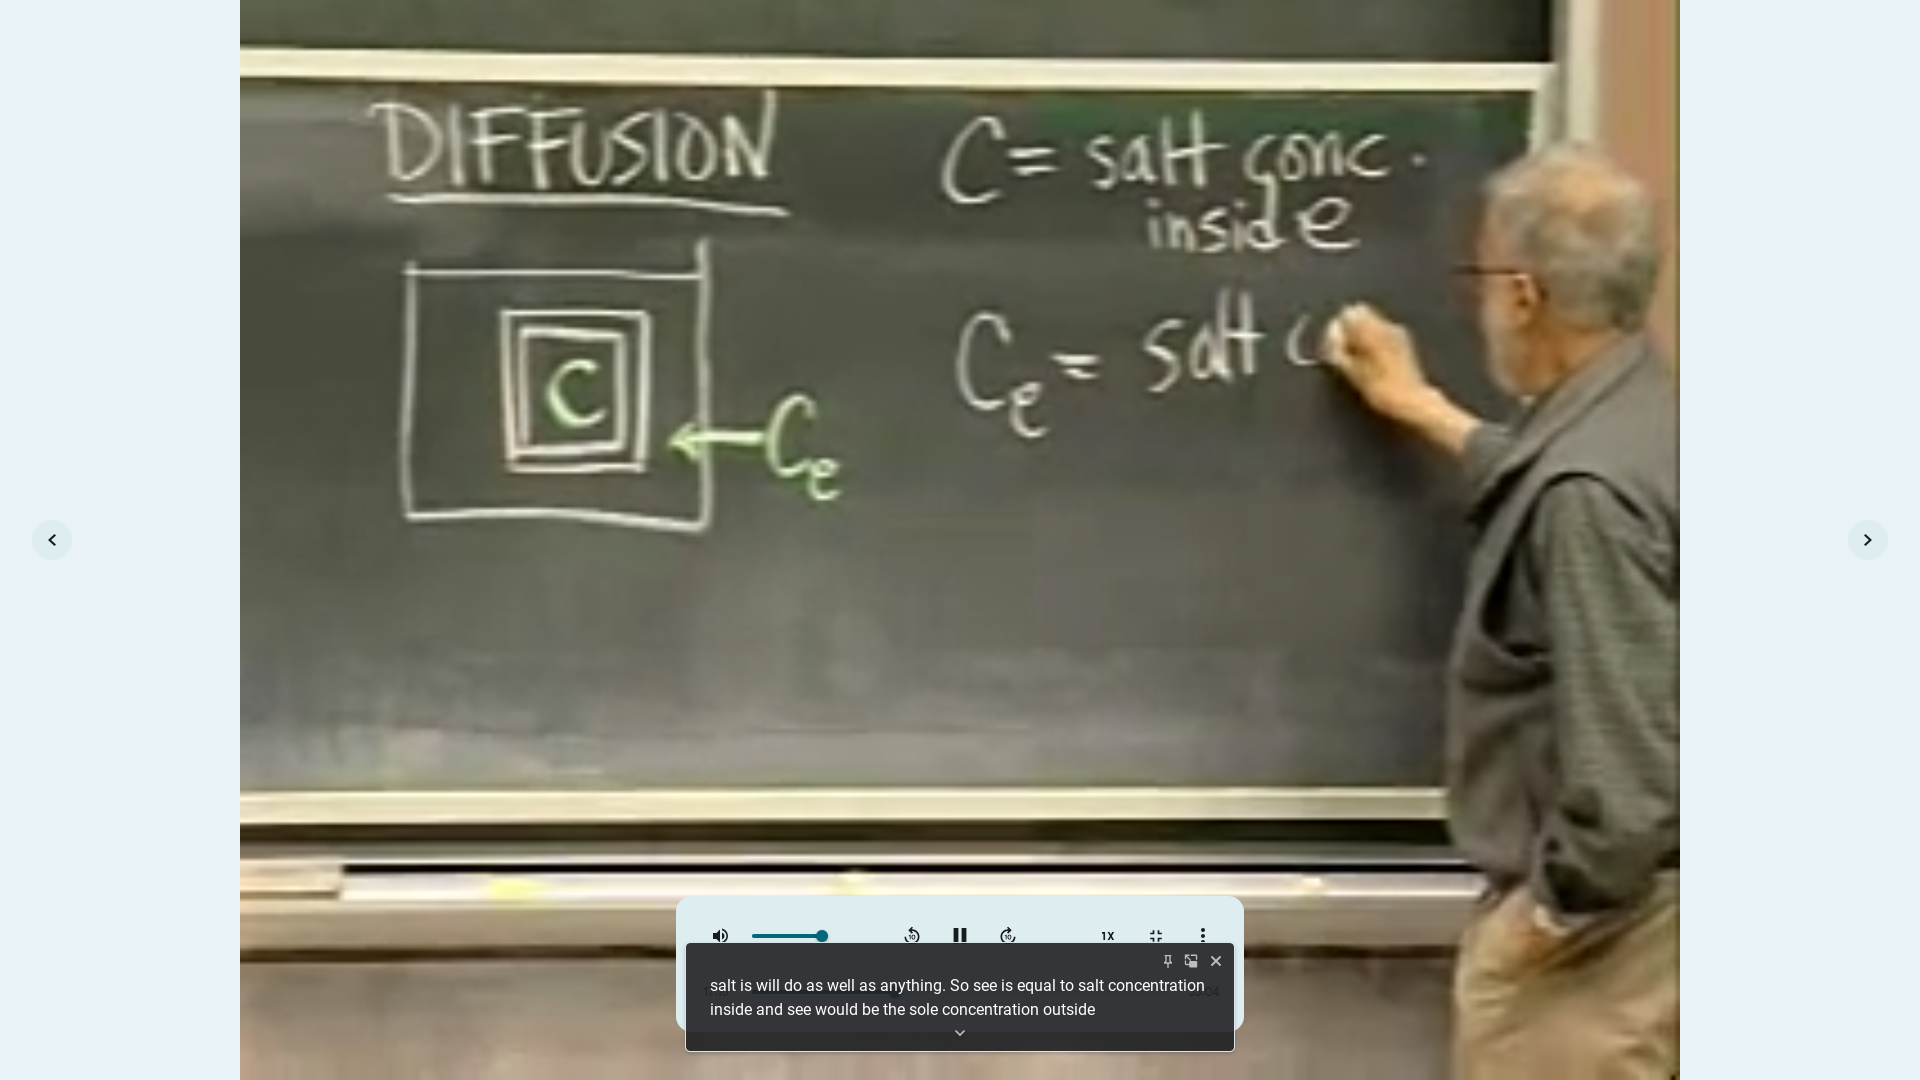 DIFFUSION
C = salt conc.
inside
C
Ce
Ce = salt c
1X
salt is will do as well as anything. So see is equal to salt concentration
inside and see would be the sole concentration outside